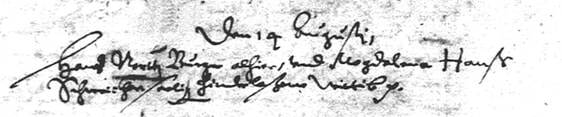 Den 14 Augustj,
Hans Moritz Burger alhier, vnd Magdalena Hans
Schmeichen seelig hinderlaßene Wittib p.